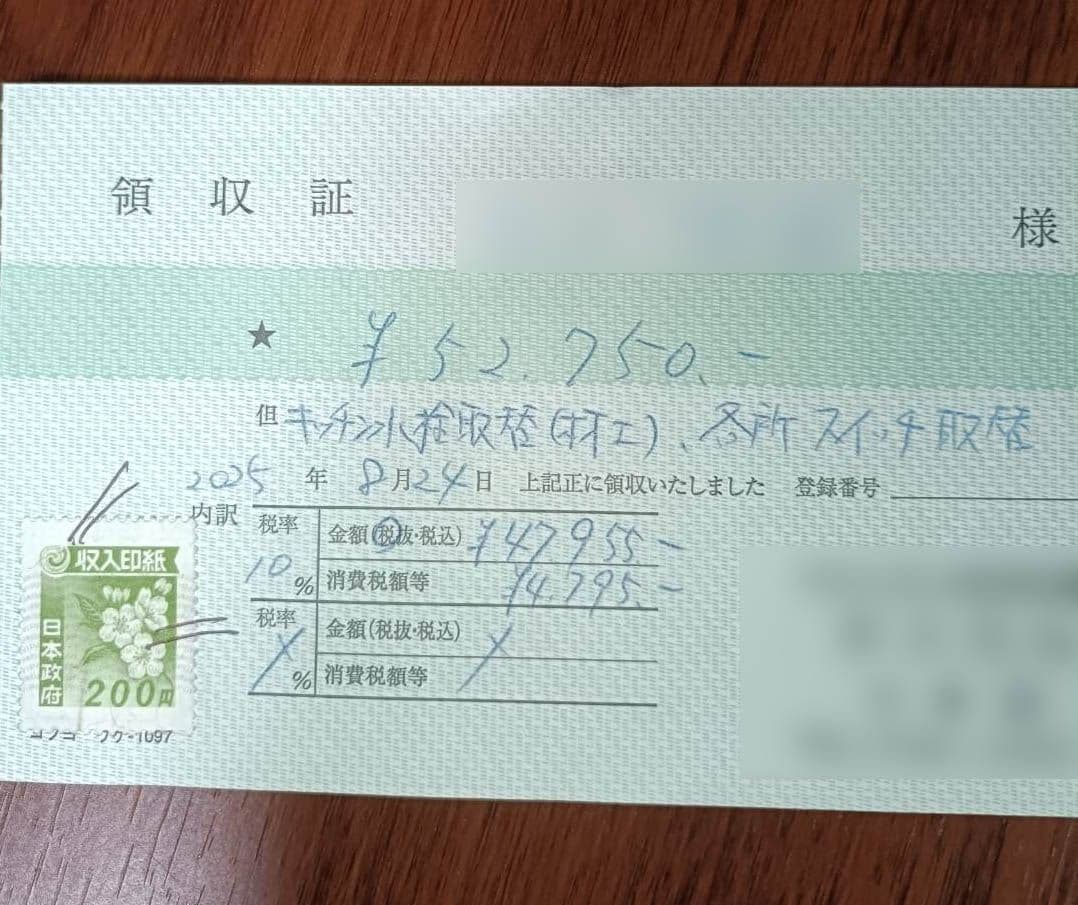 領収証 様
★ ¥52,750.-
但 キッチン水栓取替(材工)、各所スイッチ取替
2025年8月24日 上記正に領収いたしました 登録番号
内訳
税率 10% 金額(税抜・税込) ¥47,955-
消費税額等 ¥4,795.-
税率 % 金額(税抜・税込)
消費税額等
収入印紙
日本政府
200円
コクヨ ウケ-1097